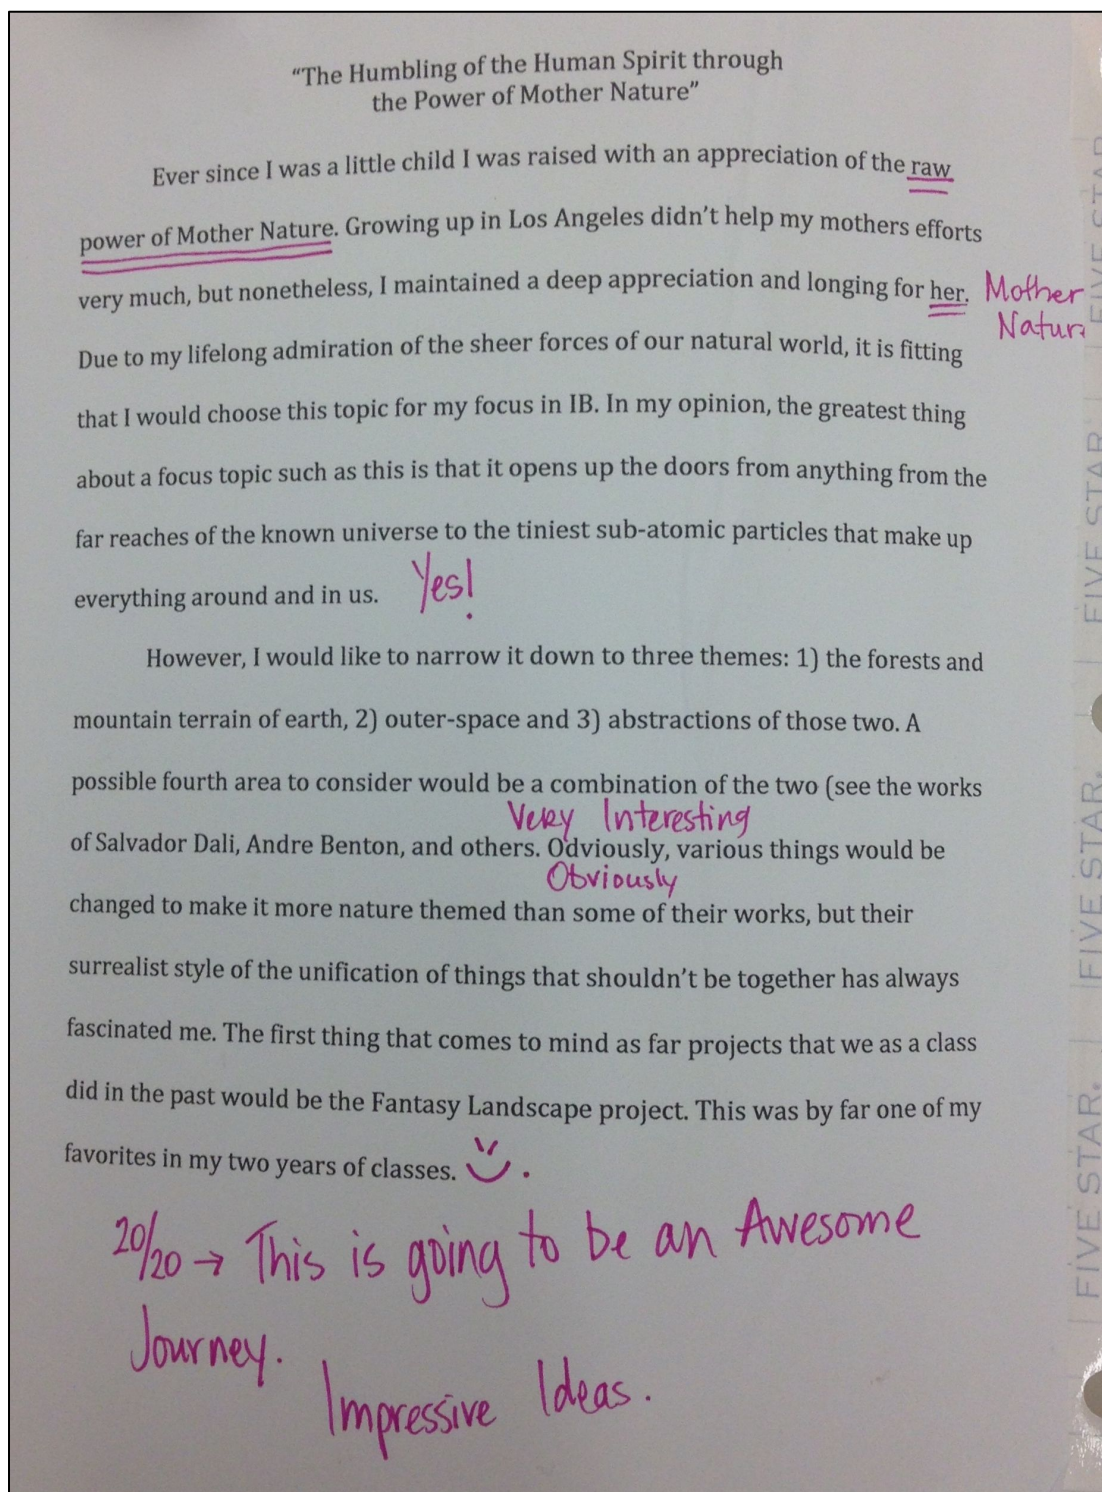 “The Humbling of the Human Spirit through
the Power of Mother Nature”
Ever since I was a little child I was raised with an appreciation of the raw
power of Mother Nature. Growing up in Los Angeles didn’t help my mothers efforts
very much, but nonetheless, I maintained a deep appreciation and longing for her. Mother
Natur
Due to my lifelong admiration of the sheer forces of our natural world, it is fitting
that I would choose this topic for my focus in IB. In my opinion, the greatest thing
about a focus topic such as this is that it opens up the doors from anything from the
far reaches of the known universe to the tiniest sub-atomic particles that make up
everything around and in us. Yes!
However, I would like to narrow it down to three themes: 1) the forests and
mountain terrain of earth, 2) outer-space and 3) abstractions of those two. A
possible fourth area to consider would be a combination of the two (see the works
Very Interesting
of Salvador Dali, Andre Benton, and others. Odviously, various things would be
Obviously
changed to make it more nature themed than some of their works, but their
surrealist style of the unification of things that shouldn’t be together has always
fascinated me. The first thing that comes to mind as far projects that we as a class
did in the past would be the Fantasy Landscape project. This was by far one of my
favorites in my two years of classes.
20/20 → This is going to be an Awesome
Journey.
Impressive Ideas.
FIVE STAR.
FIVE STAR.
FIVE STAR
FIVE STAR